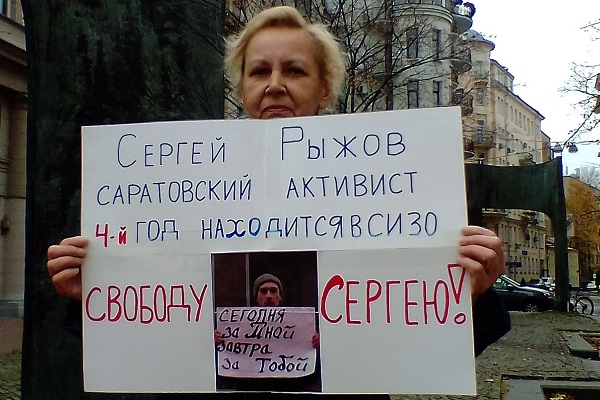 СЕРГЕЙ РЫЖОВ
САРАТОВСКИЙ АКТИВИСТ
4-й ГОД НАХОДИТСЯ В СИЗО
СВОБОДУ СЕРГЕЮ!
СЕГОДНЯ
ЗА МНОЙ
ЗАВТРА
ЗА ТОБОЙ